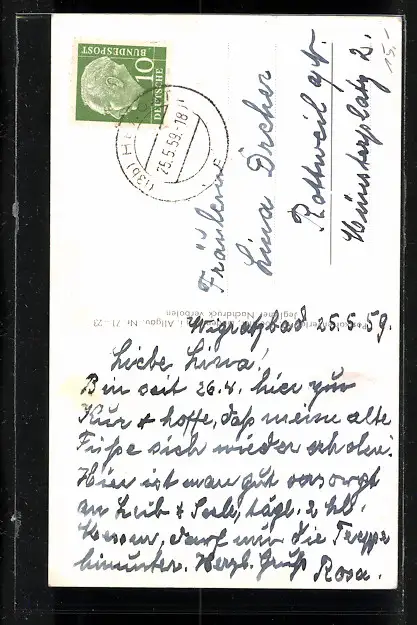 15.-
10
DEUTSCHE
BUNDESPOST
(13b)
25.5.59.-18
Fräulein
Lina Dreher
Rottweil a/N.
Münsterplatz 2.
i. Allgäu. Nr. 71-23
Jeglicher Nachdruck verboten
Wigratzbad 25.5.59.
Liebe Lina!
Bin seit 26.4. hier zur
Kur & hoffe, daß meine alte
Füße sich wieder erholen.
Hier ist man gut versorgt
an Leib & Seele, tägl. 2 hl.
Messen, darf nur die Treppe
hinunter. Herzl. Gruß
Rosa.